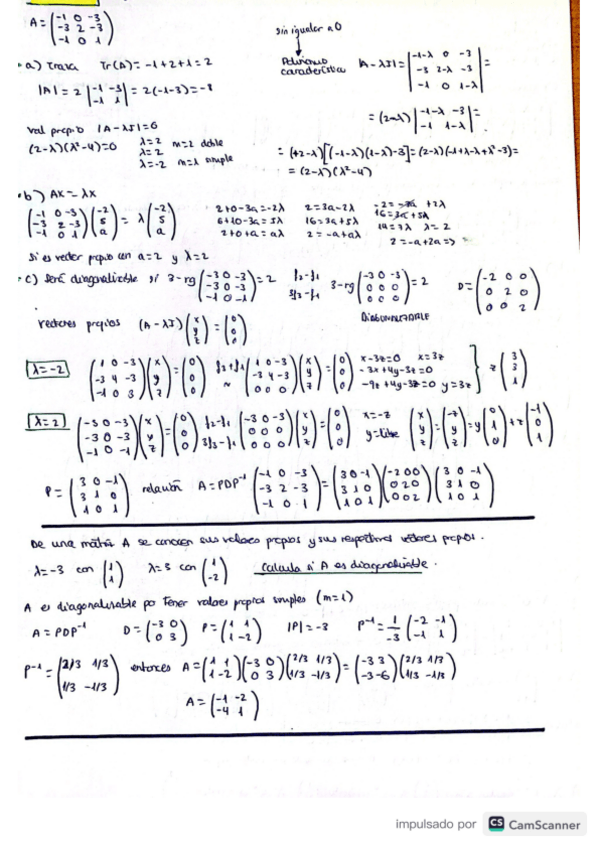 A = (-1 0 -3 / -3 2 -3 / -1 0 1)
sin igualar a 0
·a) Traza Tr(A) = -1+2+1 = 2
Polinomio característico |A-λI| = |-1-λ 0 -3 / -3 2-λ -3 / -1 0 1-λ| =
|A| = 2 |-1 -3 / -1 1| = 2(-1-3) = -8
= (2-λ) |-1-λ -3 / -1 1-λ| =
Val propio |A-λI| = 0
(2-λ)(λ²-4)=0 λ=2 λ=2 m=2 doble λ=-2 m=1 simple
= (+2-λ)[(-1-λ)(1-λ)-3] = (2-λ)(-1+λ-λ+λ²-3) =
= (2-λ)(λ²-4)
·b) AX = λX
(-1 0 -3 / -3 2 -3 / -1 0 1) (-2 / 5 / a) = λ (-2 / 5 / a)
2+0-3a=-2λ 2=3a-2λ
6+10-3a=5λ 16=3a+5λ
2+0+a=aλ 2=-a+aλ
λ=2
2=-a+2a =>
Si es vector propio con a=2 y λ=2
·c) Será diagonalizable si 3-rg (-3 0 -3 / -3 0 -3 / -1 0 -1) = 2 f2-f1 3f3-f1 3-rg (-3 0 -3 / 0 0 0 / 0 0 0) = 2 D = (-2 0 0 / 0 2 0 / 0 0 2)
DIAGONALIZABLE
Vectores propios (A-λI) (x / y / z) = (0 / 0 / 0)
λ=-2 (1 0 -3 / -3 4 -3 / -1 0 3) (x / y / z) = (0 / 0 / 0) f3+f1 ~ (1 0 -3 / -3 4 -3 / 0 0 0) (x / y / z) = (0 / 0 / 0) x-3z=0 x=3z -3x+4y-3z=0 -9z+4y-3z=0 y=3z z (3 / 3 / 1)
λ=2 (-3 0 -3 / -3 0 -3 / -1 0 -1) (x / y / z) = (0 / 0 / 0) f2-f1 3f3-f1 (-3 0 -3 / 0 0 0 / 0 0 0) (x / y / z) = (0 / 0 / 0) x=-z y=libre (x / y / z) = (-z / y / z) = y (0 / 1 / 0) + z (-1 / 0 / 1)
P = (3 0 -1 / 3 1 0 / 1 0 1) relación A = PDP⁻¹ (-1 0 -3 / -3 2 -3 / -1 0 1) = (3 0 -1 / 3 1 0 / 1 0 1) (-2 0 0 / 0 2 0 / 0 0 2) (3 0 -1 / 3 1 0 / 1 0 1)
De una matriz A se conocen sus valores propios y sus respectivos vectores propios.
λ=-3 con (1 / 1) λ=3 con (1 / -2) Calcula si A es diagonalizable.
A es diagonalizable por tener valores propios simples (m=1)
A = PDP⁻¹ D = (-3 0 / 0 3) P = (1 1 / 1 -2) |P| = -3 P⁻¹ = 1/-3 (-2 -1 / -1 1)
P⁻¹ = (2/3 1/3 / 1/3 -1/3) entonces A = (1 1 / 1 -2) (-3 0 / 0 3) (2/3 1/3 / 1/3 -1/3) = (-3 3 / -3 -6) (2/3 1/3 / 1/3 -1/3)
A = (-1 -2 / -4 1)
impulsado por CS CamScanner